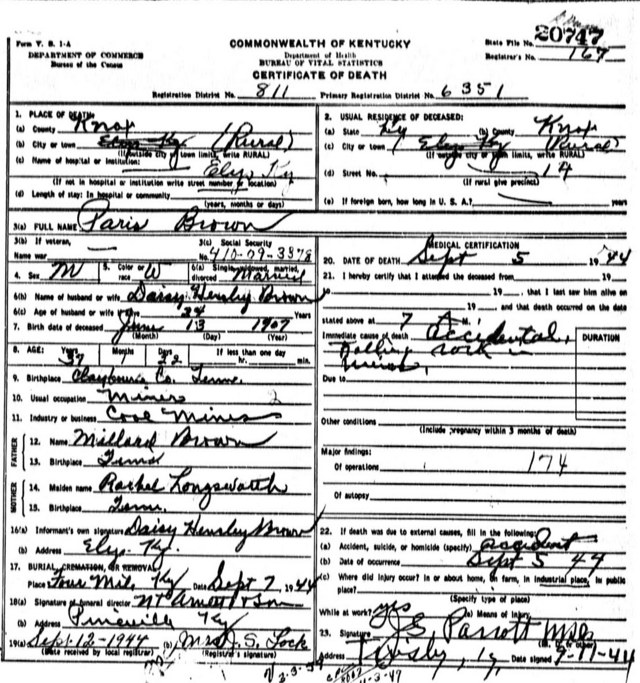 20747
Form V. S. 1-A
DEPARTMENT OF COMMERCE
Bureau of the Census
COMMONWEALTH OF KENTUCKY
Department of Health
BUREAU OF VITAL STATISTICS
CERTIFICATE OF DEATH
State File No.
Registrar's No. 167
Registration District No. 811 Primary Registration District No. 6351
1. PLACE OF DEATH:
(a) County Knox
(b) City or town Elys Ky (Rural)
(If outside city or town limits, write RURAL)
(c) Name of hospital or institution: Elys Ky
(If not in hospital or institution write street number or location)
(d) Length of stay: In hospital or community
(years, months or days)
2. USUAL RESIDENCE OF DECEASED:
(a) State Ky (b) County Knox
(c) City or town Elys Ky (Rural)
(If outside city or town limits, write RURAL)
(d) Street No. 14
(If rural give precinct)
(e) If foreign born, how long in U. S. A.? years
3(a) FULL NAME Paris Brown
3(b) If veteran, Name war
3(c) Social Security No. 410-09-3378
4. Sex M 5. Color or race W 6(a) Single, widowed, married, divorced Married
6(b) Name of husband or wife Daisy Hensley Brown
6(c) Age of husband or wife 34 Years
7. Birth date of deceased June 13 1907
(Month) (Day) (Year)
8. AGE: Years 37 Months Days 22 If less than one day hr. min.
9. Birthplace Claybourne Co. Tenn.
10. Usual occupation Miner
11. Industry or business Coal Mines
FATHER
12. Name Millard Brown
13. Birthplace Tenn
MOTHER
14. Maiden name Rachel Longsworth
15. Birthplace Tenn.
16(a) Informant's own signature Daisy Hensley Brown
(b) Address Elys Ky.
17. BURIAL, CREMATION, OR REMOVAL
Place Four Mile, Ky Date Sept 7 1944
18(a) Signature of funeral director Arnett & Son
(b) Address Pineville Ky
19(a) Sept-12-1944 (b) Mrs. J. S. Lock
(Date received by local registrar) (Registrar's signature)
MEDICAL CERTIFICATION
20. DATE OF DEATH Sept 5 1944
21. I hereby certify that I attended the deceased from 19
to 19 , that I last saw him alive on
19 , and that death occurred on the date
stated above at 7 A M.
Immediate cause of death Accidental,
Falling rock in
DURATION
Due to
Other conditions
(Include pregnancy within 3 months of death)
Major findings:
Of operations 174
Of autopsy
22. If death was due to external causes, fill in the following:
(a) Accident, suicide, or homicide (specify) accident
(b) Date of occurrence Sept 5 44
(c) Where did injury occur? In or about home, on farm, in industrial place, in public
place?
(Specify type of place)
While at work? yes (e) Means of injury
23. Signature J. E. Parrott
Address Ky. Date signed 9-11-44